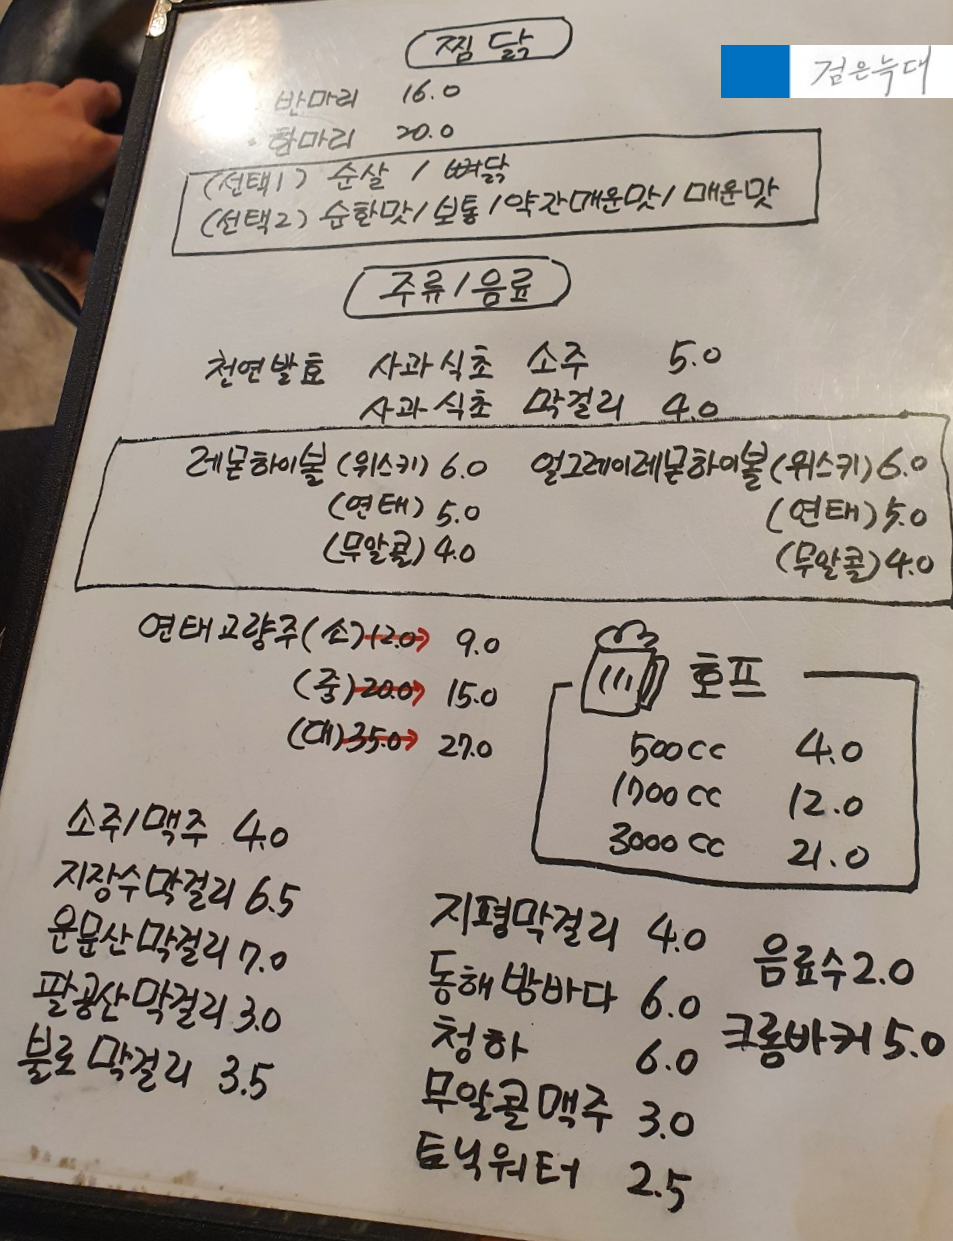 찜닭
검은늑대
반마리 16.0
· 한마리 20.0
(선택1) 순살 / 뼈닭
(선택2) 순한맛/보통/약간매운맛/매운맛
주류/음료
천연발효 사과식초 소주 5.0
사과식초 막걸리 4.0
레몬하이볼(위스키) 6.0
(연태) 5.0
(무알콜) 4.0
얼그레이레몬하이볼(위스키) 6.0
(연태) 5.0
(무알콜) 4.0
연태고량주(소) 12.0→ 9.0
(중) 20.0→ 15.0
(대) 35.0→ 27.0
호프
500cc 4.0
1700cc 12.0
3000cc 21.0
소주/맥주 4.0
지장수막걸리 6.5
운문산막걸리 7.0
팔공산막걸리 3.0
불로막걸리 3.5
지평막걸리 4.0
동해밤바다 6.0
청하 6.0
무알콜맥주 3.0
토닉워터 2.5
음료수 2.0
크롬바커 5.0